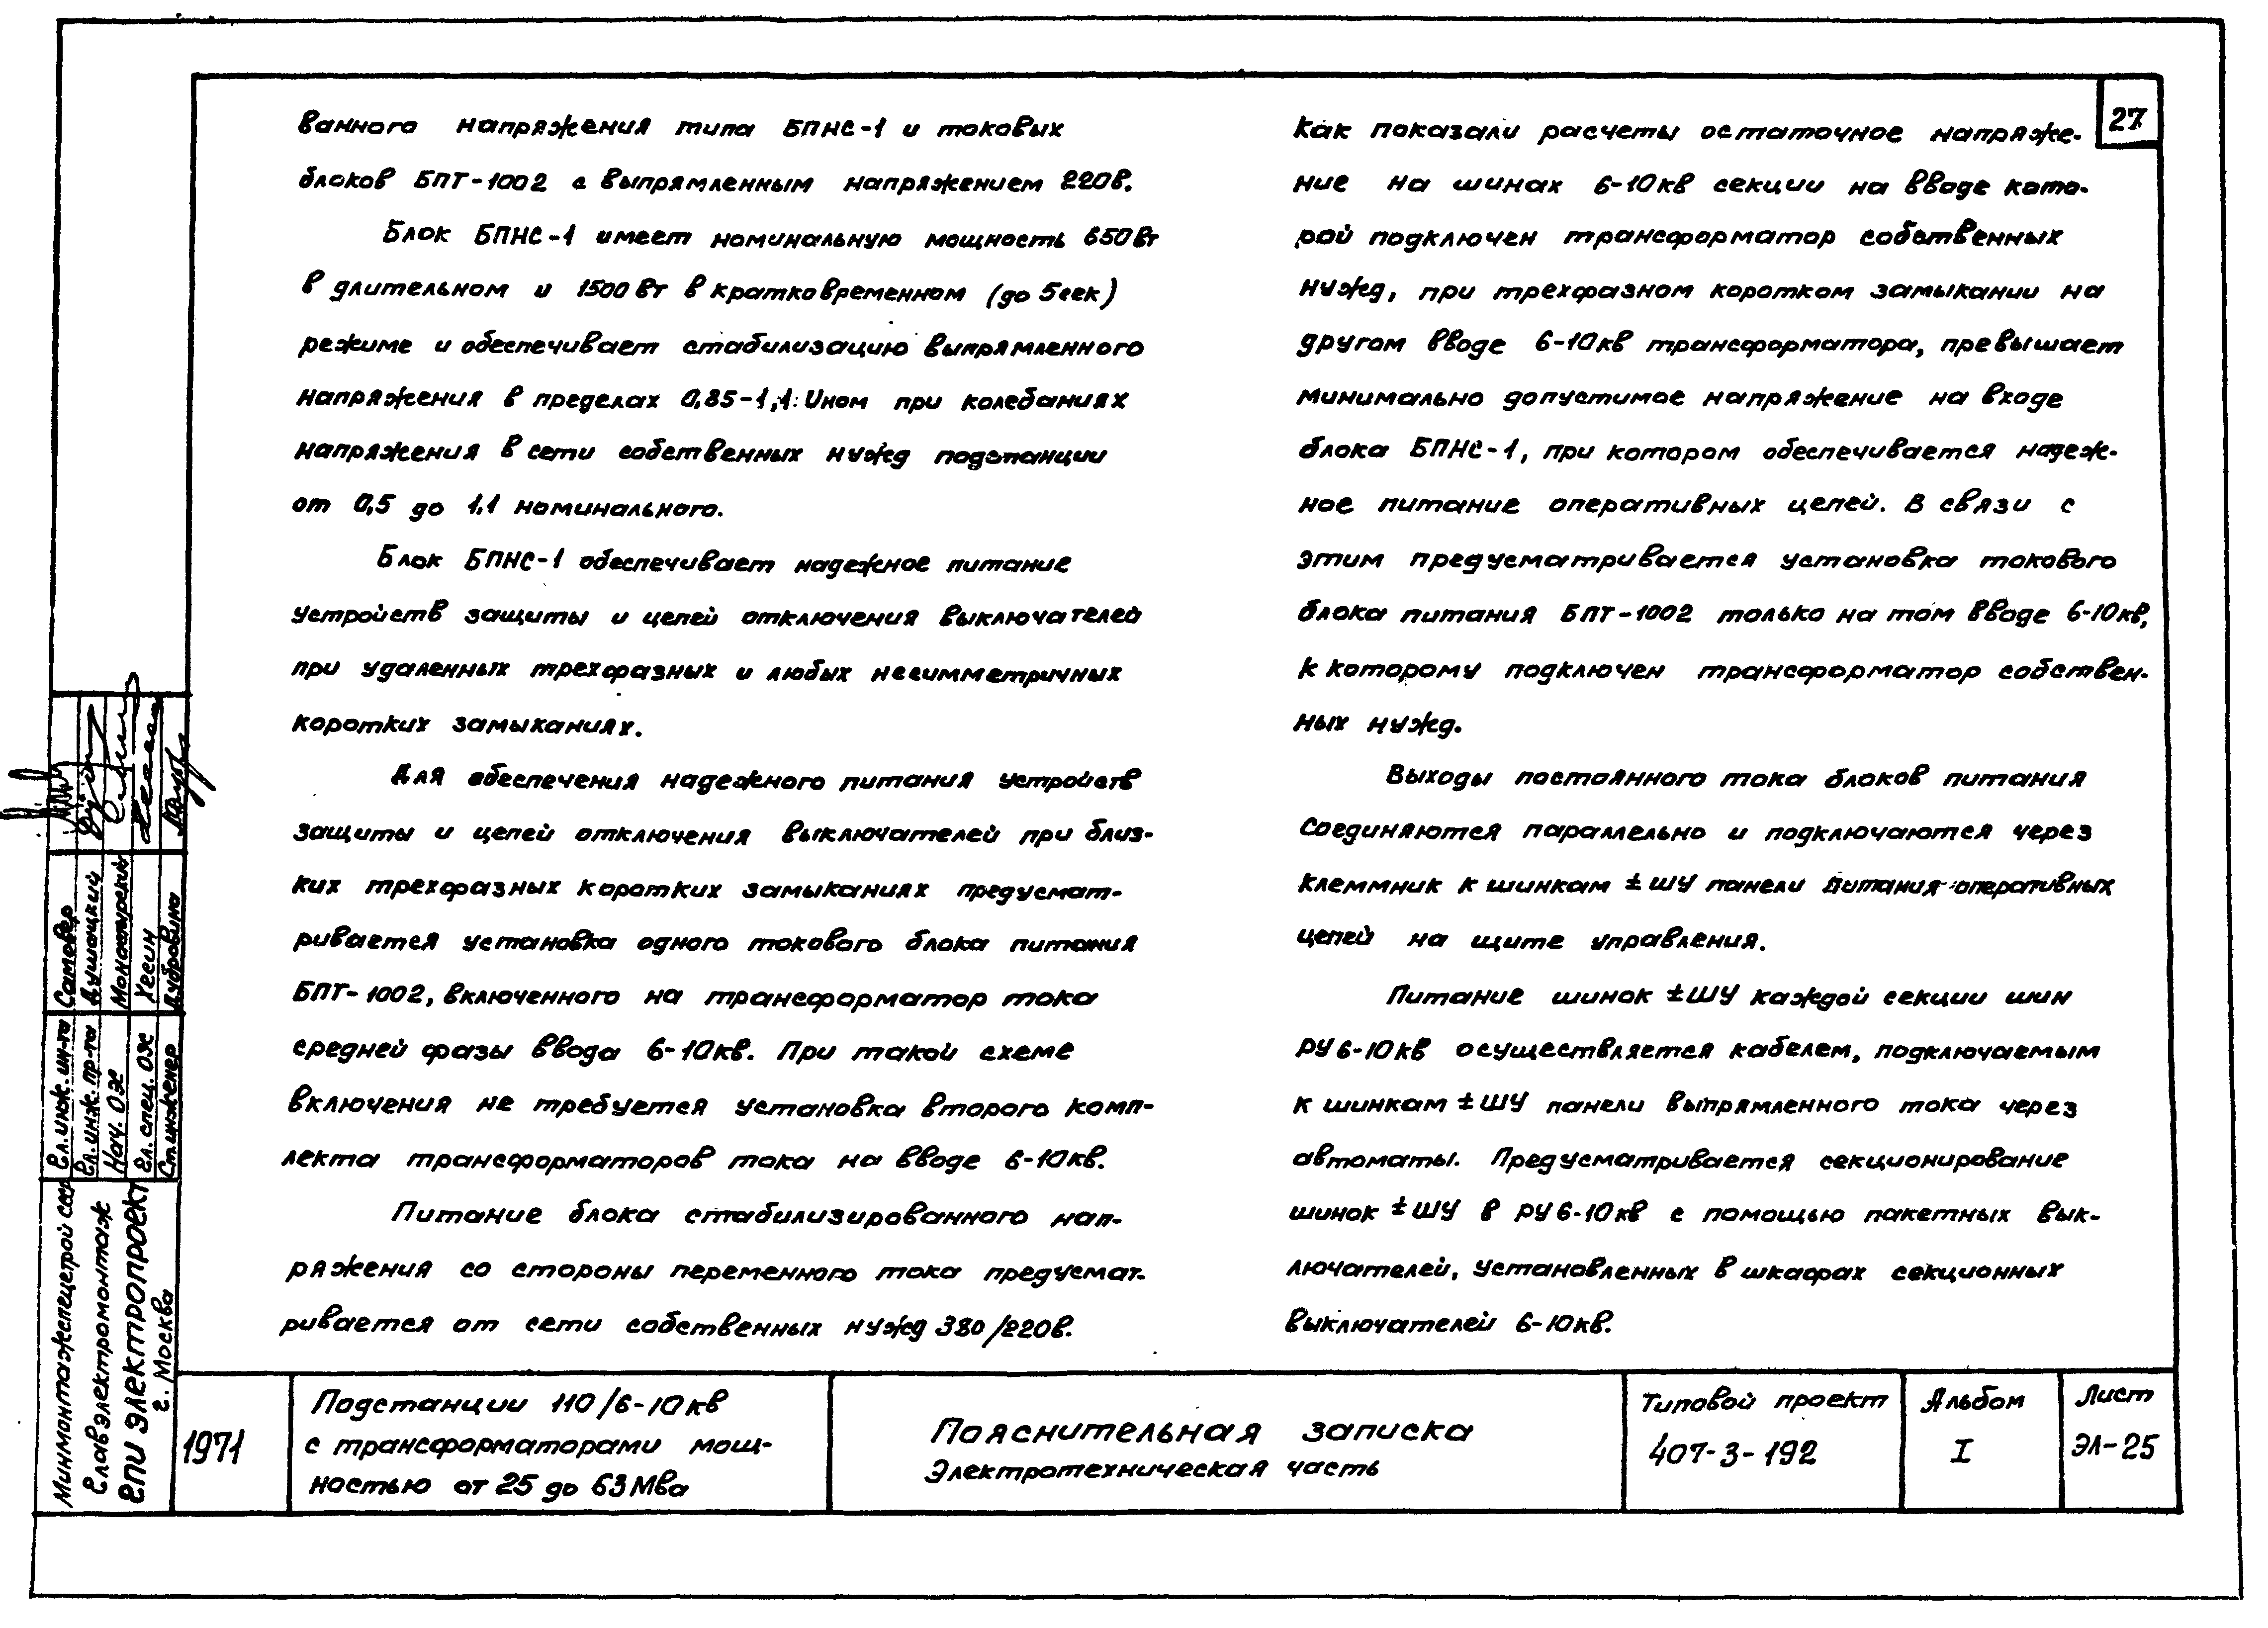 27
ванного напряжения типа БПНС-1 и токовых
блоков БПТ-1002 с выпрямленным напряжением 220в.
Блок БПНС-1 имеет номинальную мощность 650 Вт
в длительном и 1500 Вт в кратковременном (до 5сек)
режиме и обеспечивает стабилизацию выпрямленного
напряжения в пределах 0,85-1,1 Uном при колебаниях
напряжения в сети собственных нужд подстанции
от 0,5 до 1.1 номинального.
Блок БПНС-1 обеспечивает надежное питание
устройств защиты и цепей отключения выключателей
при удаленных трехфазных и любых несимметричных
коротких замыканиях.
Для обеспечения надежного питания устройств
защиты и цепей отключения выключателей при близ-
ких трехфазных коротких замыканиях предусмат-
ривается установка одного токового блока питания
БПТ-1002, включенного на трансформатор тока
средней фазы ввода 6-10кв. При такой схеме
включения не требуется установка второго комп-
лекта трансформаторов тока на вводе 6-10кв.
Питание блока стабилизированного нап-
ряжения со стороны переменного тока предусмат-
ривается от сети собственных нужд 380/220в.
Как показали расчеты остаточное напряже-
ние на шинах 6-10кв секции на вводе кото-
рой подключен трансформатор собственных
нужд, при трехфазном коротком замыкании на
другом вводе 6-10кв трансформатора, превышает
минимально допустимое напряжение на входе
блока БПНС-1, при котором обеспечивается надеж-
ное питание оперативных цепей. В связи с
этим предусматривается установка токового
блока питания БПТ-1002 только на том вводе 6-10кв,
к которому подключен трансформатор собствен-
ных нужд.
Выходы постоянного тока блоков питания
соединяются параллельно и подключаются через
клеммник к шинкам ± ШУ панели питания оперативных
цепей на щите управления.
Питание шинок ± ШУ каждой секции шин
РУ 6-10кв осуществляется кабелем, подключаемым
к шинкам ± ШУ панели выпрямленного тока через
автоматы. Предусматривается секционирование
шинок ± ШУ в РУ 6-10кв с помощью пакетных вык-
лючателей, установленных в шкафах секционных
выключателей 6-10кв.
Гл.инж.ин-та Самовер
Гл.инж.пр-та Душацкий
Нач. ОЖ
Гл. спец. ОЖ Хесин
Ст.инженер Дубровина
Минмонтажспецстрой ссср
Главэлектромонтаж
ГПИ Электропроект
г. Москва
1971
Подстанции 110/6-10кв
с трансформаторами мощ-
ностью от 25 до 63Мва
Пояснительная записка
Электротехническая часть
Типовой проект
407-3-192
Альбом
I
Лист
ЭЛ-25